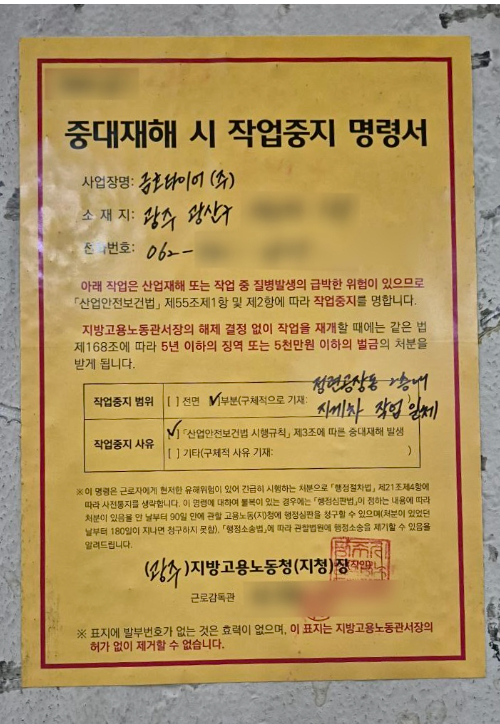 중대재해 시 작업중지 명령서
사업장명: 금호타이어 (주)
소 재 지: 광주 광산구
전화번호: 062-
아래 작업은 산업재해 또는 작업 중 질병발생의 급박한 위험이 있으므로
「산업안전보건법」 제55조제1항 및 제2항에 따라 작업중지를 명합니다.
지방고용노동관서장의 해제 결정 없이 작업을 재개할 때에는 같은 법
제168조에 따라 5년 이하의 징역 또는 5천만원 이하의 벌금의 처분을
받게 됩니다.
작업중지 범위 [ ] 전면 [✓]부분(구체적으로 기재: 정련공장동 2층내
지게차 작업 일체
작업중지 사유 [✓] 「산업안전보건법 시행규칙」 제3조에 따른 중대재해 발생
[ ] 기타(구체적 사유 기재: )
※ 이 명령은 근로자에게 현저한 유해위험이 있어 긴급히 시행하는 처분으로 「행정절차법」 제21조제4항에
따라 사전통지를 생략합니다. 이 명령에 대하여 불복이 있는 경우에는 「행정심판법」이 정하는 내용에 따라
처분이 있음을 안 날부터 90일 안에 관할 고용노동(지)청에 행정심판을 청구할 수 있으며(처분이 있었던
날부터 180일이 지나면 청구하지 못함), 「행정소송법」에 따라 관할법원에 행정소송을 제기할 수 있음을
알려드립니다.
(광주)지방고용노동청(지청)장
근로감독관
※ 표지에 발부번호가 없는 것은 효력이 없으며, 이 표지는 지방고용노동관서장의
허가 없이 제거할 수 없습니다.